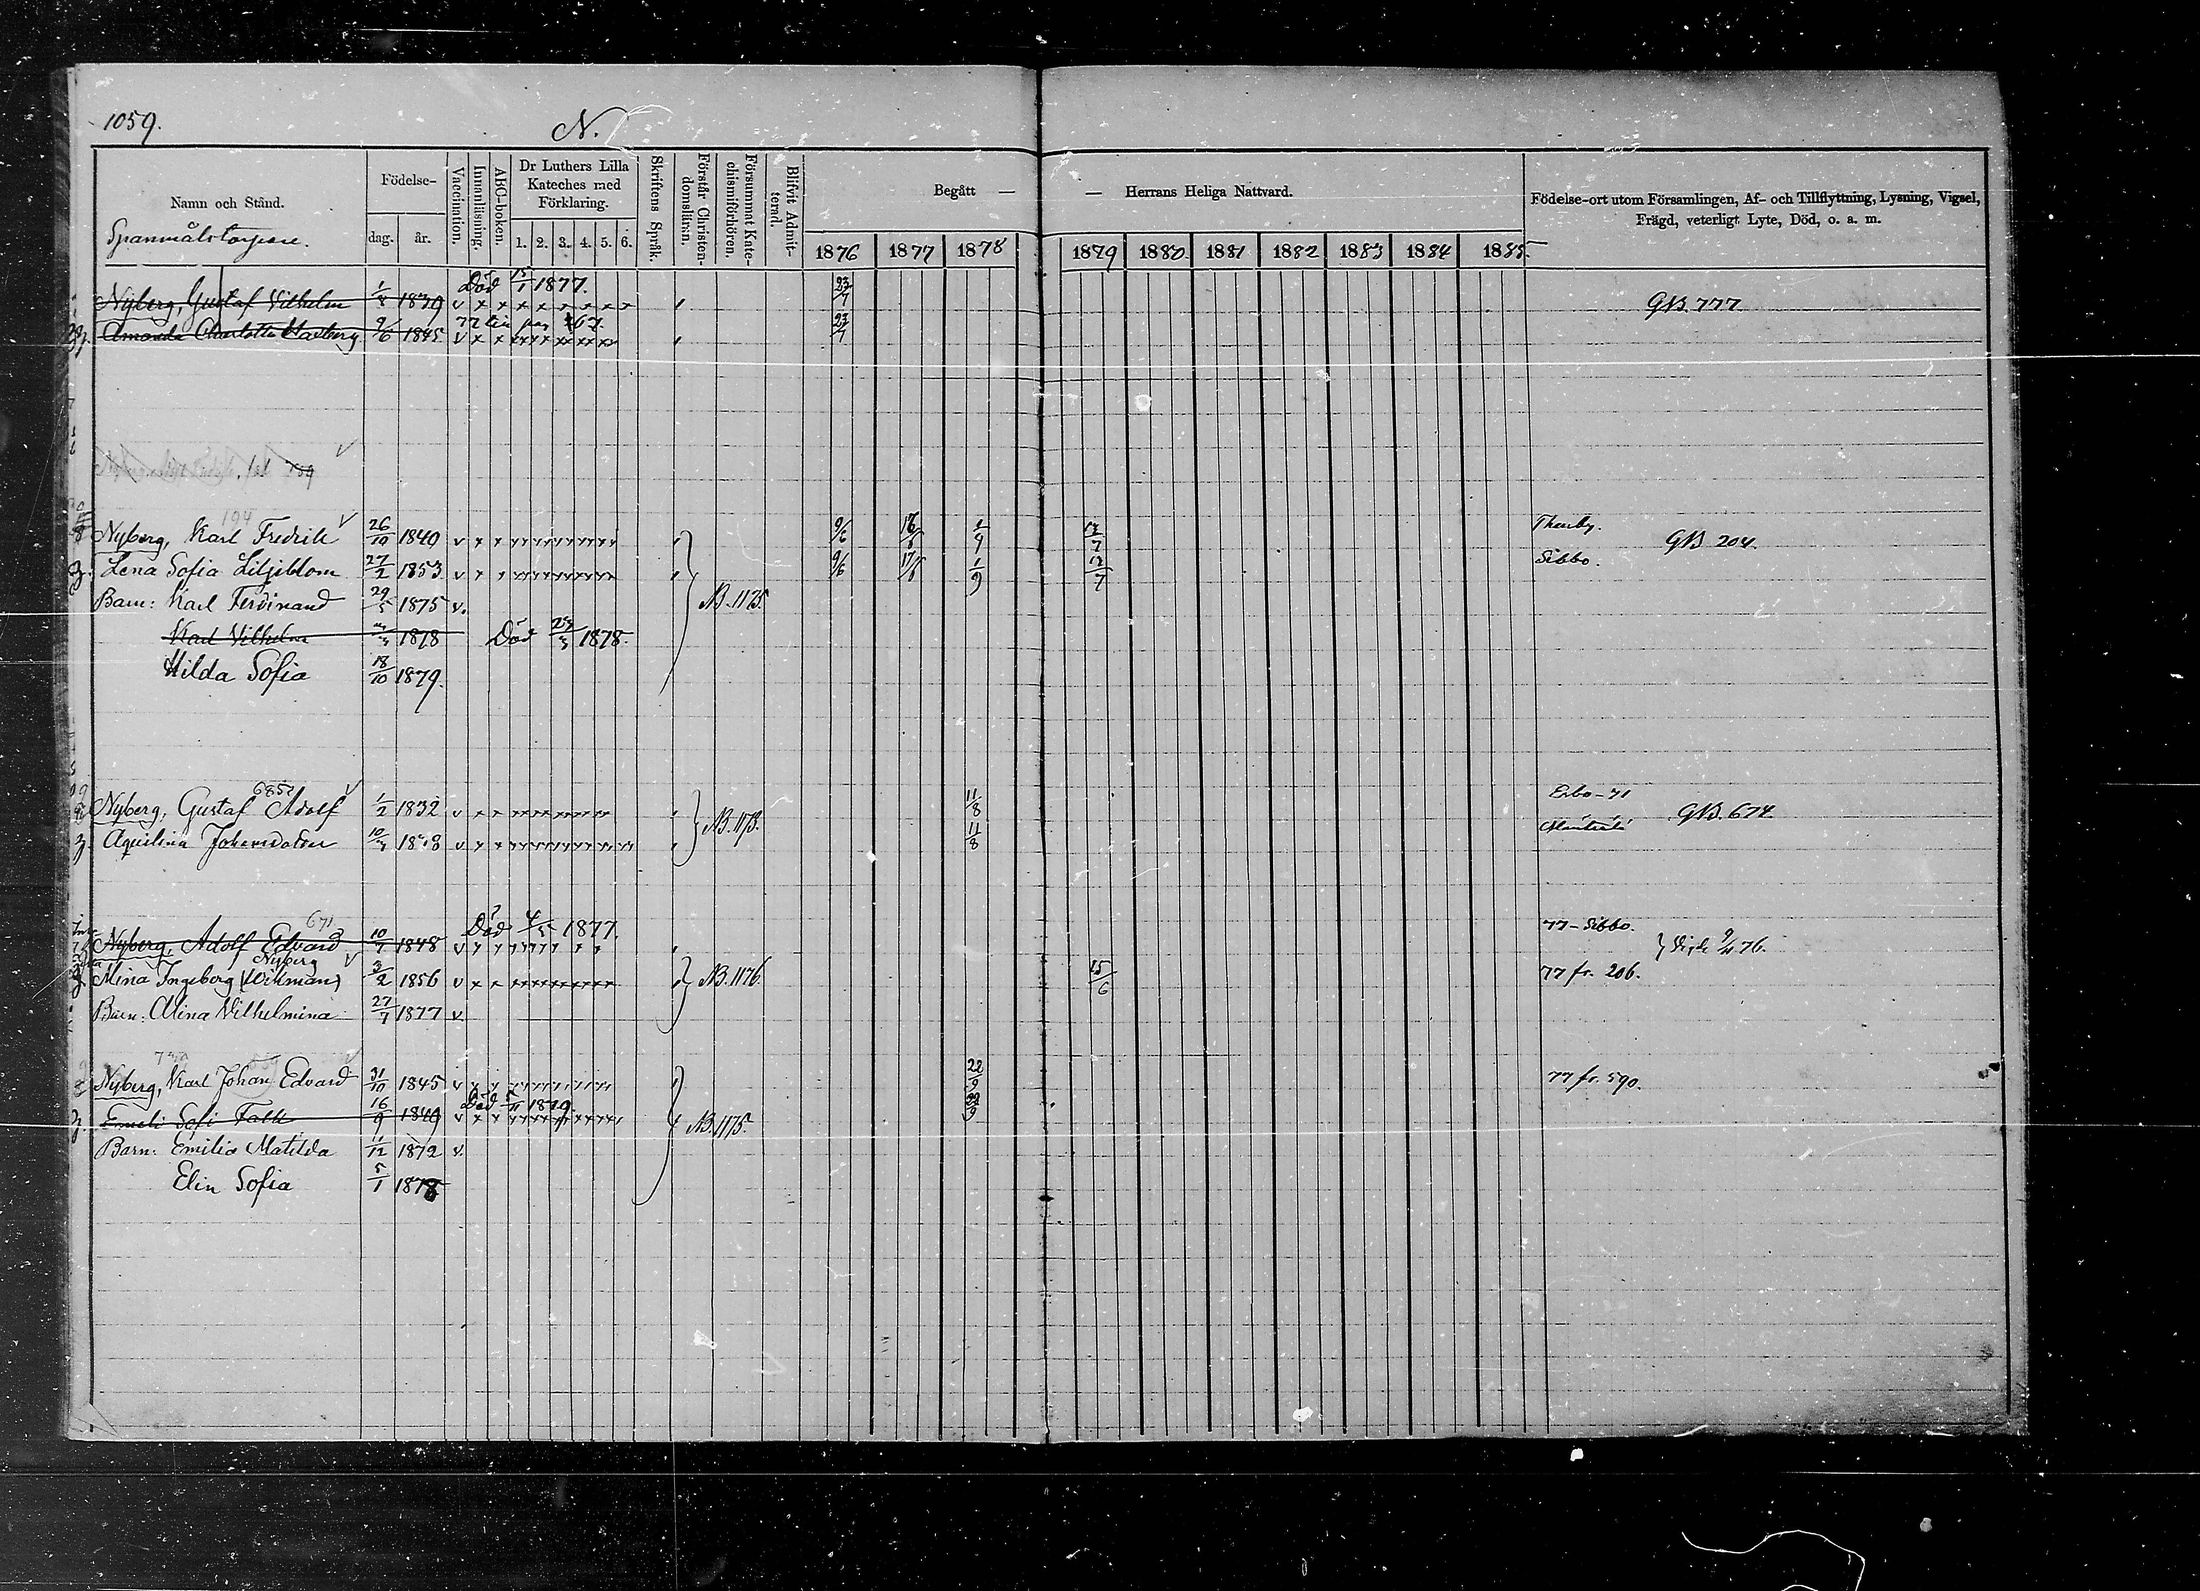 1059.
N.
Namn och Stånd.
Födelse-
dag.
år.
Vaccination.
Innanläsning.
ABC-boken.
Dr Luthers Lilla Kateches med Förklaring.
1. 2. 3. 4. 5. 6.
Skriftens Språk.
Förstår Christendomsläran.
Försummat Katechismiförhören.
Blifvit Admitterad.
Begått — — Herrans Heliga Nattvard.
1876 1877 1878 1879 1880 1881 1882 1883 1884 1885
Födelse-ort utom Församlingen, Af- och Tillflyttning, Lysning, Vigsel, Frägd, veterligt Lyte, Död, o. a. m.
Död 15/1 1877.
Nyberg, Gustaf Vilhelm 1/8 1839 23/7 GB. 777
Amanda Charlotta 9/6 1845 23/7
194
Nyberg, Karl Fredrik 26/10 1840 9/6 1/9 13/7 GB 204.
Lena Sofia Liljeblom 27/2 1853 9/6 17/6 1/9 13/7 Sibbo.
Barn: Karl Ferdinand 29/5 1875 v. NB. 1175.
Karl Vilhelm 1878 Död 1878.
Hilda Sofia 18/10 1879.
685
Nyberg, Gustaf Adolf 1/2 1832 11/8 GB. 674
Aquilina 11/8 NB. 1173.
671 Död 4/5 1877.
Nyberg, Adolf Edvard 10/7 1848 77 - Sibbo.
Nyberg
Mina Ingeborg (Wikman) 3/2 1856 NB. 1176. 15/6 77 fr. 206.
Barn: Mina Vilhelmina 27/7 1877 v.
Nyberg, Karl Johan Edvard 31/10 1845 22/9 77 fr. 590.
Död 1879
Emeli Sofi Falk 16/9 1849 22/9 NB. 1175.
Barn: Emilia Matilda 11/12 1872 v.
Elin Sofia 5/1 1878